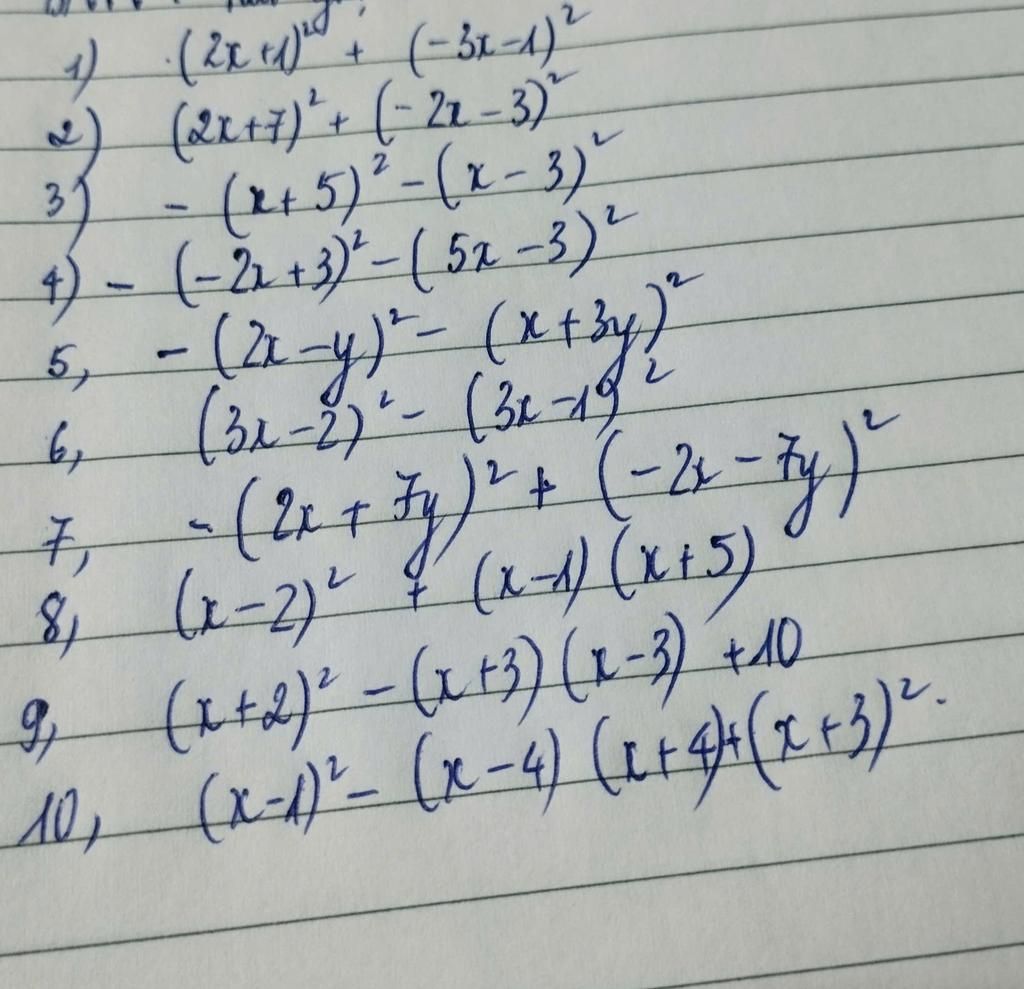 1) (2x+1)² + (-3x-1)²
2) (2x+7)² + (-2x-3)²
3) - (x+5)² - (x-3)²
4) - (-2x+3)² - (5x-3)²
5, - (2x-y)² - (x+3y)²
6, (3x-2)² - (3x-1)²
7, - (2x+7y)² + (-2x-7y)²
8, (x-2)² + (x-1)(x+5)
9, (x+2)² - (x+3)(x-3) +10
10, (x-1)² - (x-4)(x+4)+(x+3)².